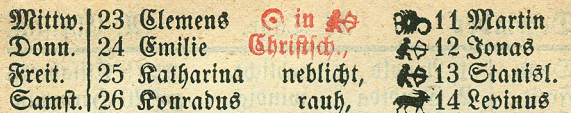 Mittw. 23 Clemens ☉ in ♐ 🦂 11 Martin
Donn. 24 Emilie Christsch., ♐ 12 Jonas
Freit. 25 Katharina neblicht, ♐ 13 Stanisl.
Samst. 26 Konradus rauh, ♑ 14 Levinus